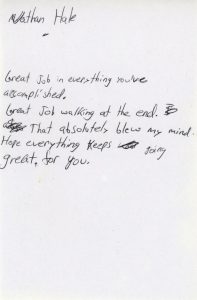 Nathan Hale
Great Job in everything you've
accomplished.
Great Job walking at the end.
That absolutely blew my mind.
Hope everything keeps going
great, for you.